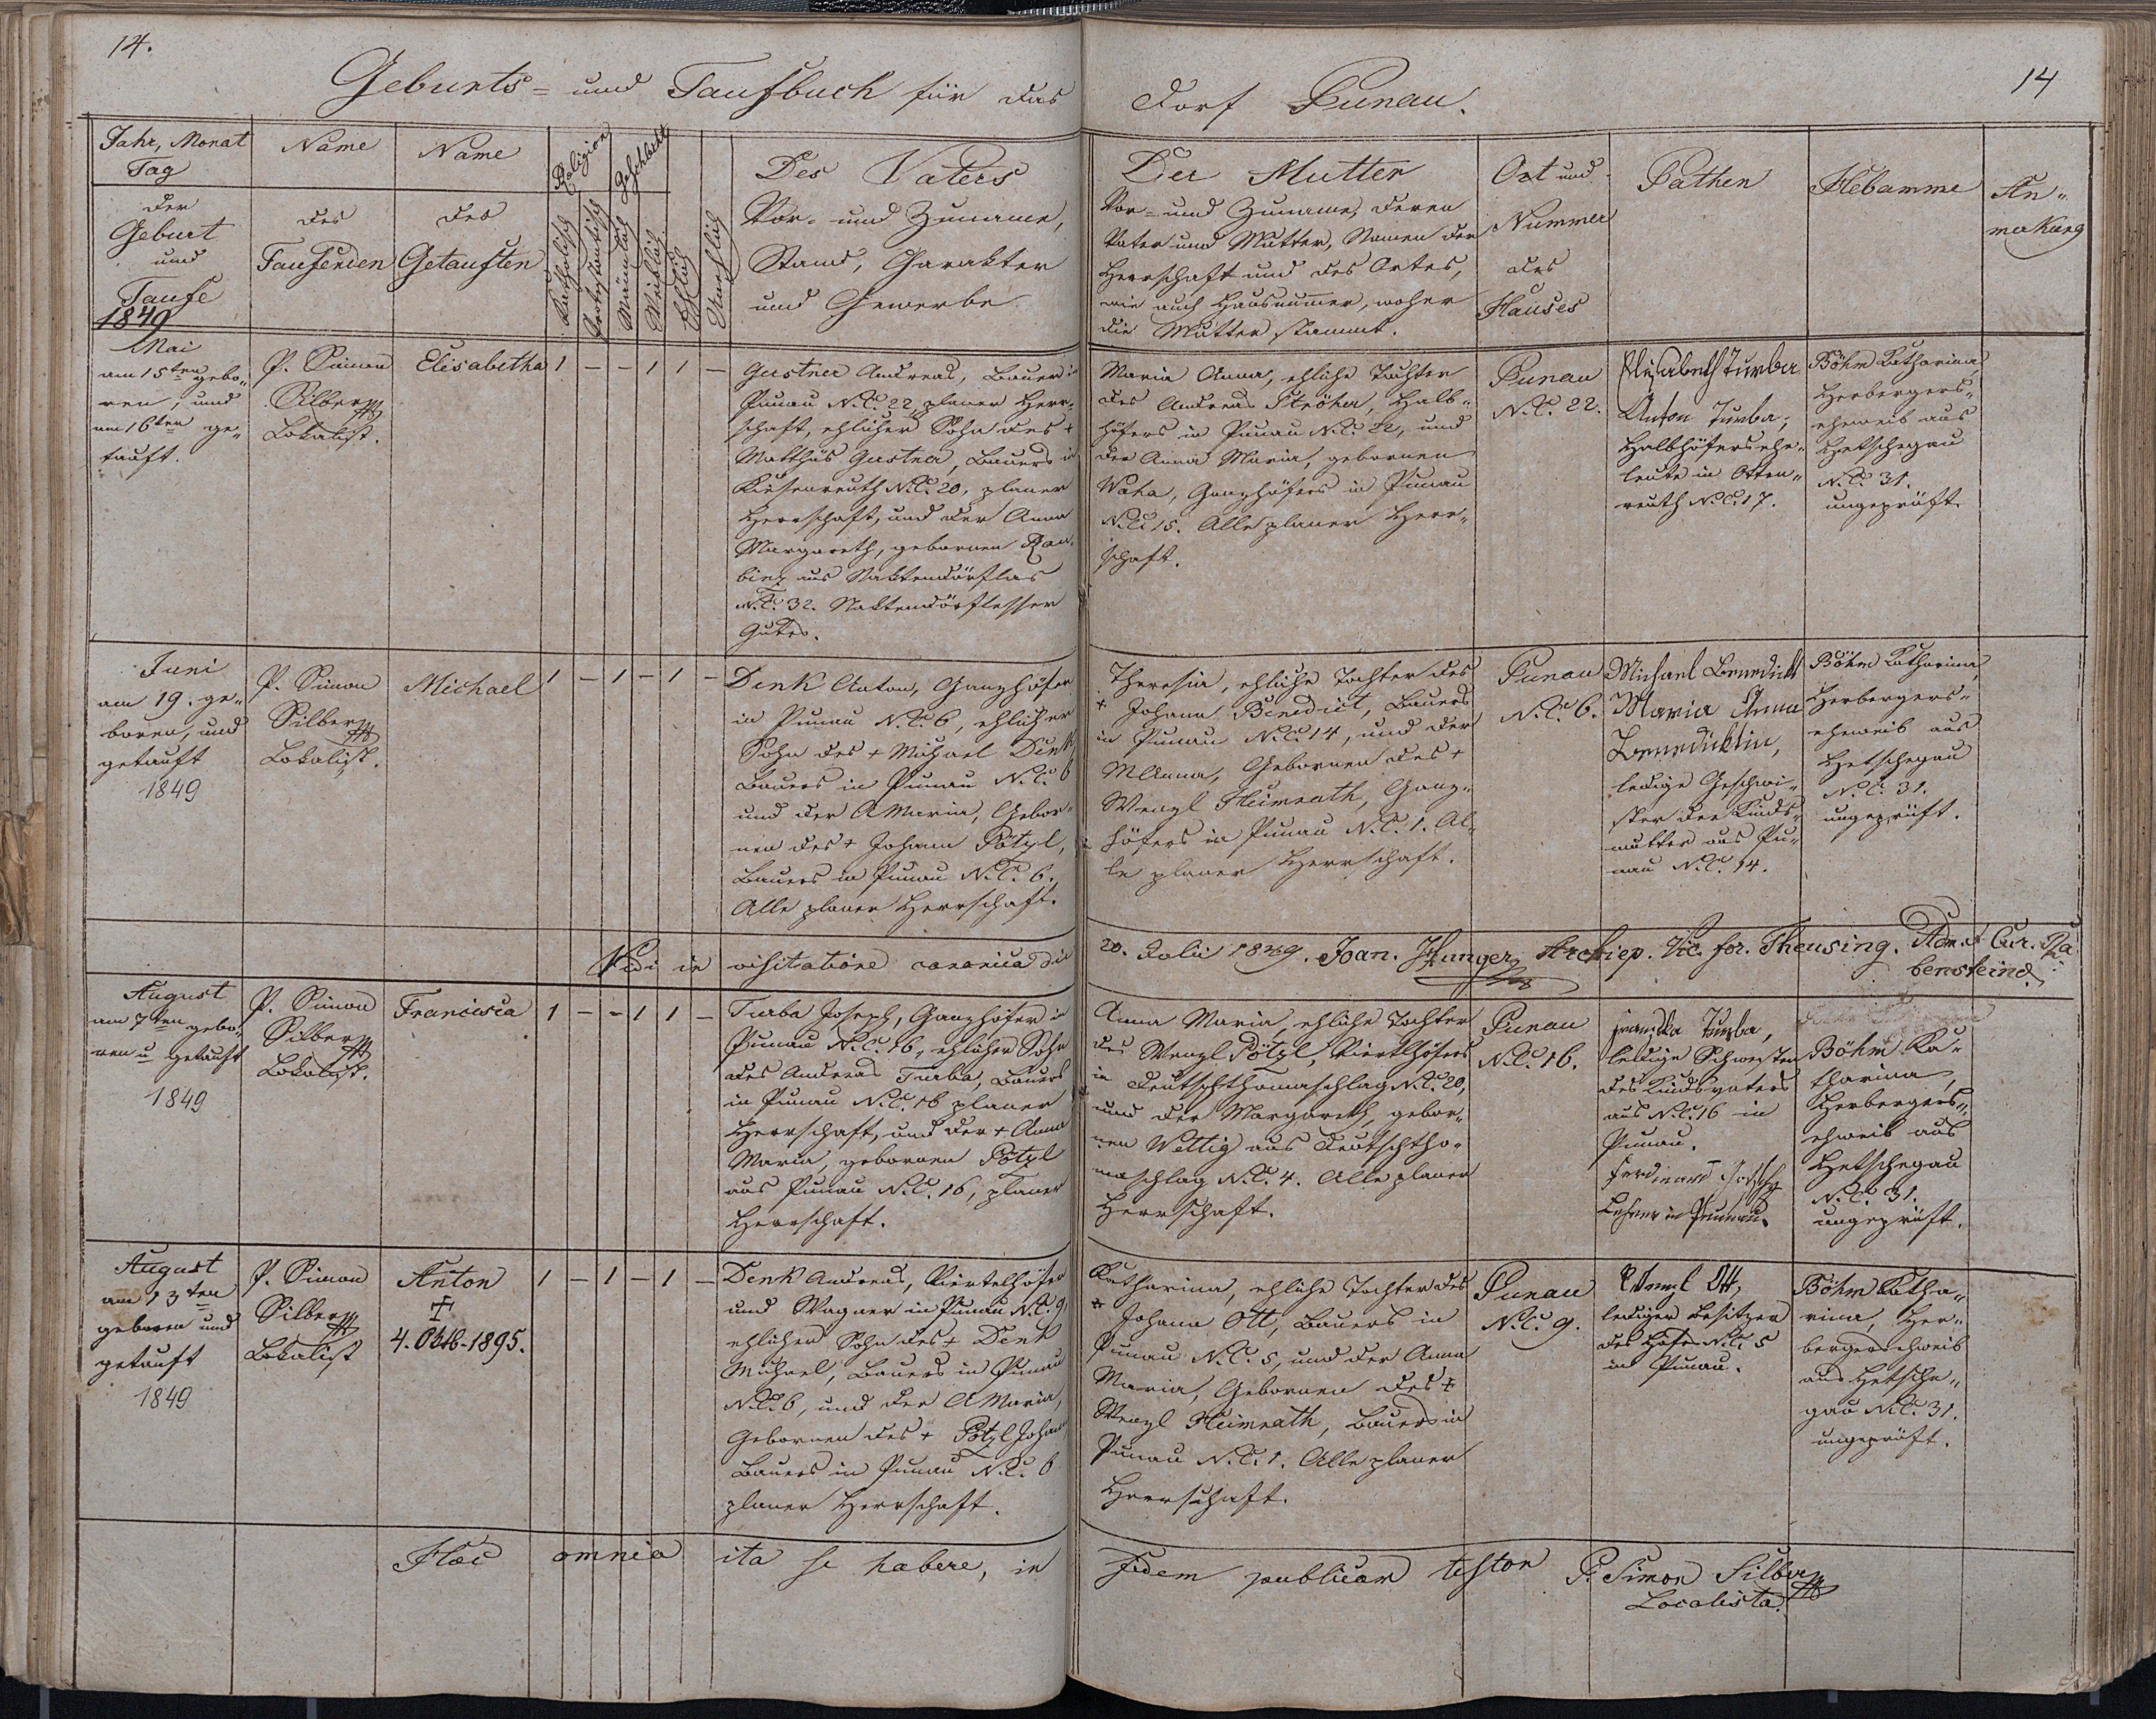 14.
Geburts- und Taufbuch für das
Dorf Punau.
14
Jahr, Monat
Tag
der
Geburt
und
Taufe
1849
Name
des
Taufenden
Name
des
Getauften
Religion
Katholisch
Protestantisch
Geschlecht
Männlich
Weiblich
Ehlich
Unehlich
Des Vaters
Vor- und Zuname,
Stand, Carakter
und Gewerbe
Der Mutter
Vor- und Zuname, deren
Vater und Mutter, Namen der
Herrschaft und des Ortes,
wie auch Hausnummer, woher
die Mutter stammt.
Ort und
Nummer
des
Hauses
Pathen
Hebamme
An-
merkung
Mai
am 15ten gebo-
ren, und
am 16ten ge-
tauft.
P. Simon
Silber
Lokalist.
Elisabetha
1 – – 1 1 –
Gustner Andreas, Bauer in
Punau N.C. 22, planer Herr-
schaft, ehlicher Sohn des +
Matthäs Gustner, Bauers in
Kiesenreuth N.C. 20, planer
Herrschaft, und der Anna
Margareth, gebornen
aus
N.C. 32.
Gutes.
Maria Anna, ehliche Tochter
des Andreas Ströher, Halb-
höfers in Punau N.C. 22, und
der Anna Maria, gebornen
Waha, Ganzhöfers in Punau
N.C. 15. Alle planer Herr-
schaft.
Punau
N.C. 22.
Elisabeth Turba
Anton Turba,
Halbhöfersehe-
leute in Otten-
reuth N.C. 17.
Böhm Katharina,
Herbergers-
eheweib aus
Hetschegau
N.C. 31.
ungeprüft.
Juni
am 19. ge-
boren, und
getauft
1849
P. Simon
Silber
Lokalist.
Michael
1 – 1 – 1 –
Denk Anton, Ganzhöfer
in Punau N.C. 6, ehlicher
Sohn des + Michael Denk,
Bauers in Punau N.C. 6
und der A Maria, Gebor-
nen des + Johann Pötzl,
Bauers in Punau N.C. 6.
Alle planer Herrschaft.
Theresia, ehliche Tochter des
+ Johann Benedict, Bauers
in Punau N.C. 14, und der
M Anna, Gebornen des +
Wenzl Heimrath, Ganz-
höfers in Punau N.C. 1. Al-
le planer Herrschaft.
Punau
N.C. 6.
Michael Benedickt
Maria Anna
Benedicktin,
ledige Geschwi-
ster der Kinds-
mutter aus Pu-
nau N.C. 14.
Böhm Katharina,
Herbergers-
eheweib aus
Hetschegau
N.C. 31.
ungeprüft.
Vidi in visitatione canonica die
20. Julii 1849. Joan. Hunger, Archiep. Vic. for. Theusing. Adm. Cur. Ra-
bensteind.
August
am 7ten gebo-
ren u getauft
1849
P. Simon
Silber
Lokalist.
Francisca
1 – – 1 1 –
Turba Joseph, Ganzhöfer in
Punau N.C. 16, ehlicher Sohn
des Andreas Turba, Bauers
in Punau N.C. 16 planer
Herrschaft, und der + Anna
Maria, gebornen Pötzl
aus Punau N.C. 16, planer
Herrschaft.
Anna Maria, ehliche Tochter
des Wenzl Pötzl, Viertlhöfers
in Deutschthomaschlag N.C. 20,
und der Margareth, gebor-
nen Wettig aus Deutschtho-
maschlag N.C. 4. Alle planer
Herrschaft.
Punau
N.C. 16.
Franziska Turba,
ledige Schwester
des Kindsvaters
aus N.C. 16 in
Punau.
Ferdinand
Lehrer in Punau.
Böhm Ka-
tharina,
Herbergers-
eheweib aus
Hetschegau
N.C. 31.
ungeprüft.
August
am 13ten
geboren und
getauft
1849
P. Simon
Silber
Lokalist
Anton
+
4. Okt. 1895.
1 – 1 – 1 –
Denk Andreas, Viertelhöfer
und Wagner in Punau N.C. 9,
ehlicher Sohn des + Denk
Michael, Bauers in Punau
N.C. 6, und der A Maria,
Gebornen des + Pötzl Johann,
Bauers in Punau N.C. 6
planer Herrschaft.
Katharina, ehliche Tochter des
+ Johann Ott, Bauers in
Punau N.C. 5, und der Anna
Maria, Gebornen des +
Wenzl Heimrath, Bauers in
Punau N.C. 1. Alle planer
Herrschaft.
Punau
N.C. 9.
Wenzl Ott,
lediger Besitzer
des Hofes N.C. 5
in Punau.
Böhm Katha-
rina, Her-
bergerseheweib
aus Hetsche-
gau N.C. 31.
ungeprüft.
Haec omnia ita se habere, in
Fidem publicam testor P. Simon Silber
Localista.